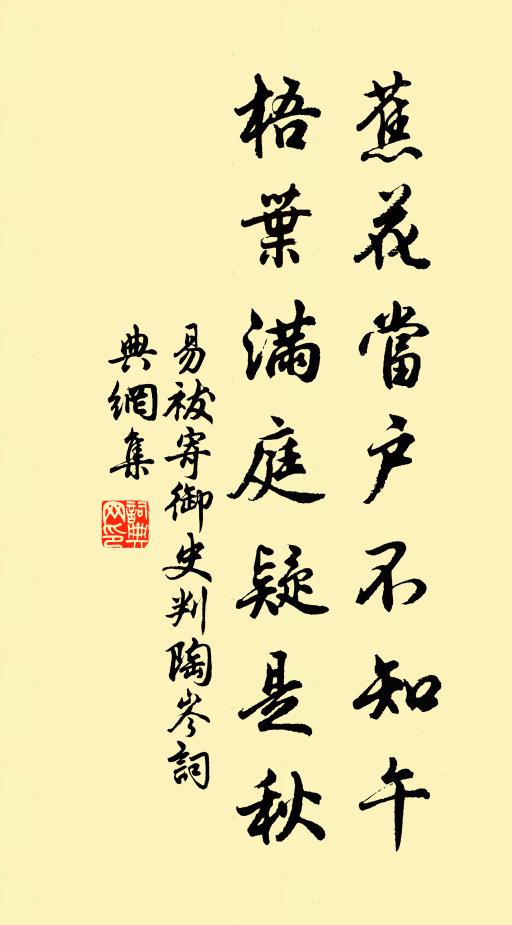 蕉花當户不知午
梧葉滿庭疑是秋
易祓寄御史判陶岑詞
典網集
詞典網印